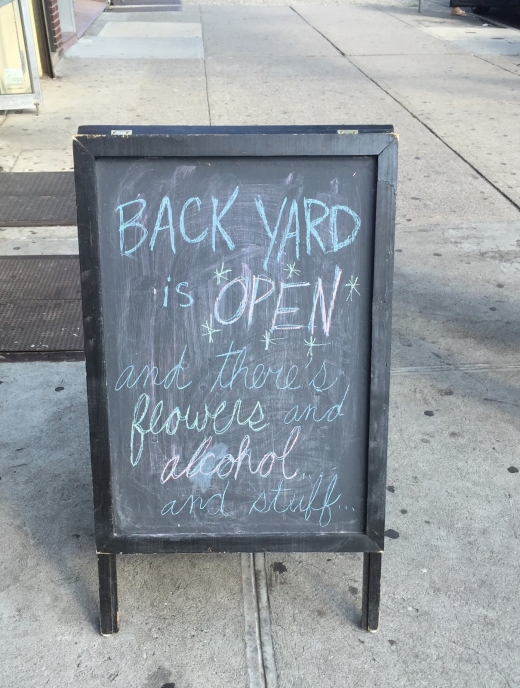 BACK YARD
is OPEN
and there's
flowers and
alcohol..
and stuff...